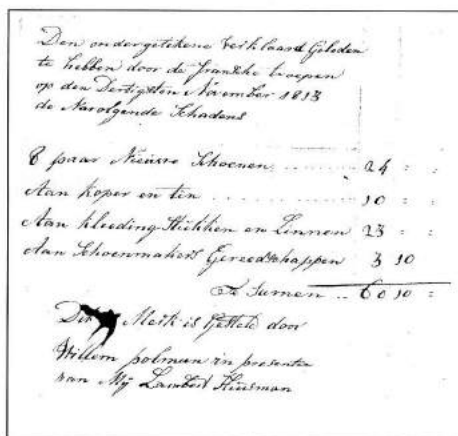 Den ondergetekene Verklaard Geleden
te hebben door de fransche troepen
op den Dertigsten November 1813
de Navolgende Schadens
8 paar Nieuwe Schoenen ........ 24 : :
Aan koper en tin ........... 10 : :
Aan kleeding Stukken en Linnen 23 : :
Aan Schoenmakers Gereedschappen 3 10
Te Samen .. 60 10 :
Dit Merk is Gesteld door
Willem polman in presentie
van Mij Lambert Huisman